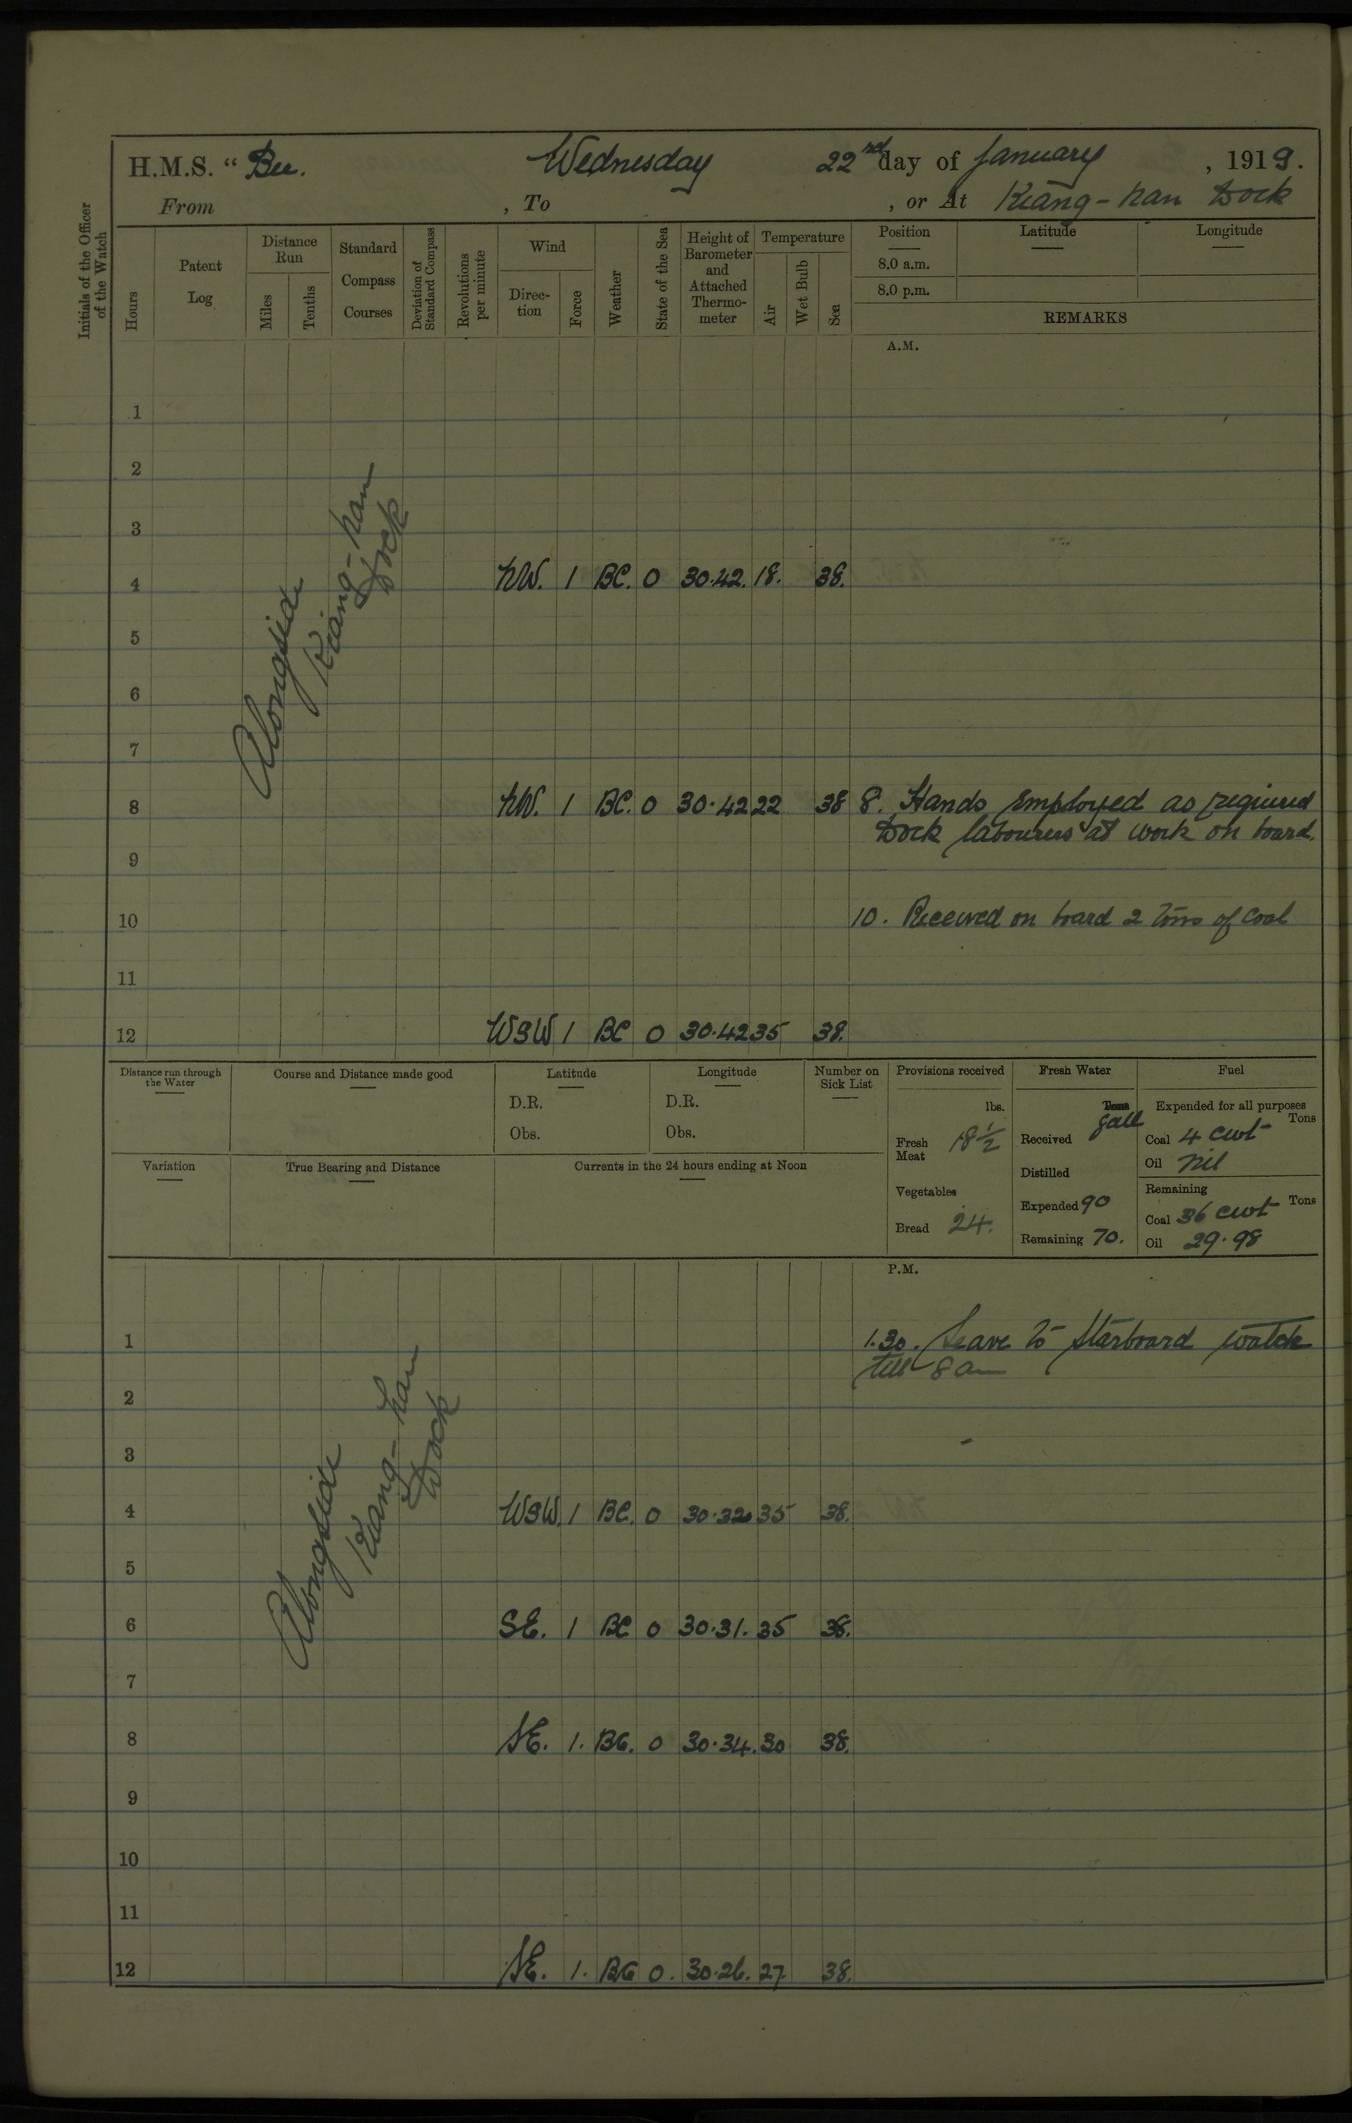 H.M.S. " Bee. Wednesday 22nd day of January, 1919.
From , To , or At Kiang-nan Dock
Initials of the Officer of the Watch
Hours
Patent Log
Distance Run
Miles
Tenths
Standard Compass Courses
Deviation of Standard Compass
Revolutions per minute
Wind
Direction
Force
Weather
State of the Sea
Height of Barometer and Attached Thermometer
Temperature
Air
Wet Bulb
Sea
Position Latitude Longitude
8.0 a.m.
8.0 p.m.
REMARKS
A.M.
Alongside
Kiang-nan
Dock
1
2
3
4 NW. 1 BC. 0 30.42. 18. 38.
5
6
7
8 NW. 1 BC. 0 30.42 22 38 8. Hands employed as required
Dock labourers at work on board.
9
10 10. Received on board 2 tons of coal
11
12 WSW 1 BC 0 30.42 35 38.
Distance run through the Water
Course and Distance made good
Latitude
D.R.
Obs.
Longitude
D.R.
Obs.
Number on Sick List
Variation
True Bearing and Distance
Currents in the 24 hours ending at Noon
Provisions received
lbs.
Fresh Meat 18 1/2
Vegetables
Bread 24.
Fresh Water
Tons
Galls
Received
Distilled
Expended 90
Remaining 70.
Fuel
Expended for all purposes
Tons
Coal 4 cwt
Oil nil
Remaining
Tons
Coal 36 cwt
Oil 29.98
P.M.
Alongside
Kiang-nan
Dock
1 1.30. Leave to Starboard watch
till 8 am
2
3
4 WSW. 1 BC. 0 30.32 35 38.
5
6 SE. 1 BC 0 30.31. 35 38.
7
8 SE. 1. BC. 0 30.34. 30 38.
9
10
11
12 SE. 1. BC 0. 30.26. 27 38.